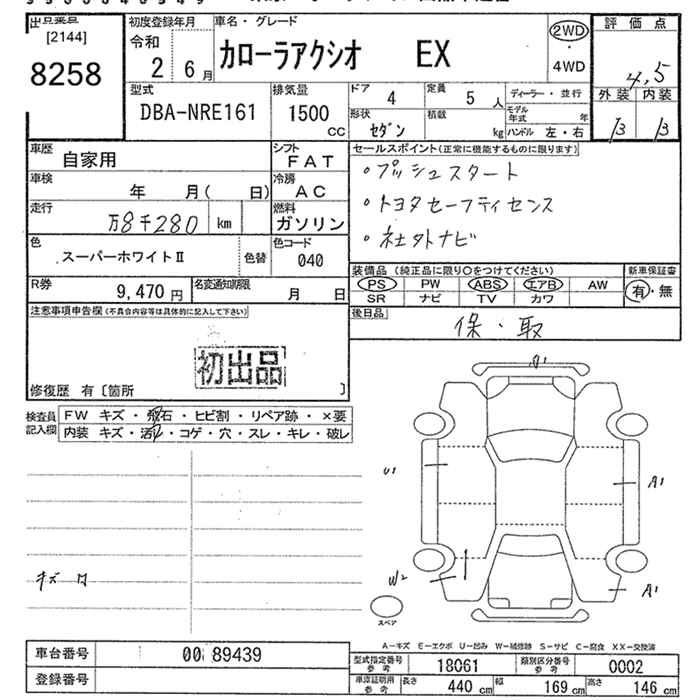 [2144]
8258
初度登録年月
令和
2 6月
車名・グレード
カローラアクシオ EX
2WD
・
4WD
評価点
4,5
外装 内装
B B
型式
DBA-NRE161
排気量
1500
CC
ドア 4
定員 5 人
ディーラー・並行
形状 セダン
積載 kg
モデル年式 年
ハンドル 左・右
車歴 自家用
シフト FAT
車検 年 月( 日)
冷房 AC
走行 万8千280 km
燃料 ガソリン
色 スーパーホワイトⅡ
色替
色コード 040
R券 9,470円
名変通知期限 月 日
セールスポイント(正常に機能するものに限ります)
・プッシュスタート
・トヨタセーフティセンス
・社外ナビ
装備品(純正品に限り○をつけてください)
新車保証書
PS PW ABS エアB AW
有・無
SR ナビ TV カワ
後日品
保・取
注意事項申告欄(不具合内容等は具体的に記入して下さい)
初出品
修復歴 有〔箇所 〕
検査員
記入欄
FW キズ・飛石・ヒビ割・リペア跡・×要
内装 キズ・汚れ・コゲ・穴・スレ・キレ・破レ
U1
A1
W2
A1
スペア
A−キズ E−エクボ U−凹み W−補修跡 S−サビ C−腐食 XX−交換済
車台番号 00 89439
登録番号
型式指定番号
参考
18061
類別区分番号
参考
0002
車庫証明用
参考
長さ 440 cm
幅 169 cm
高さ 146 cm